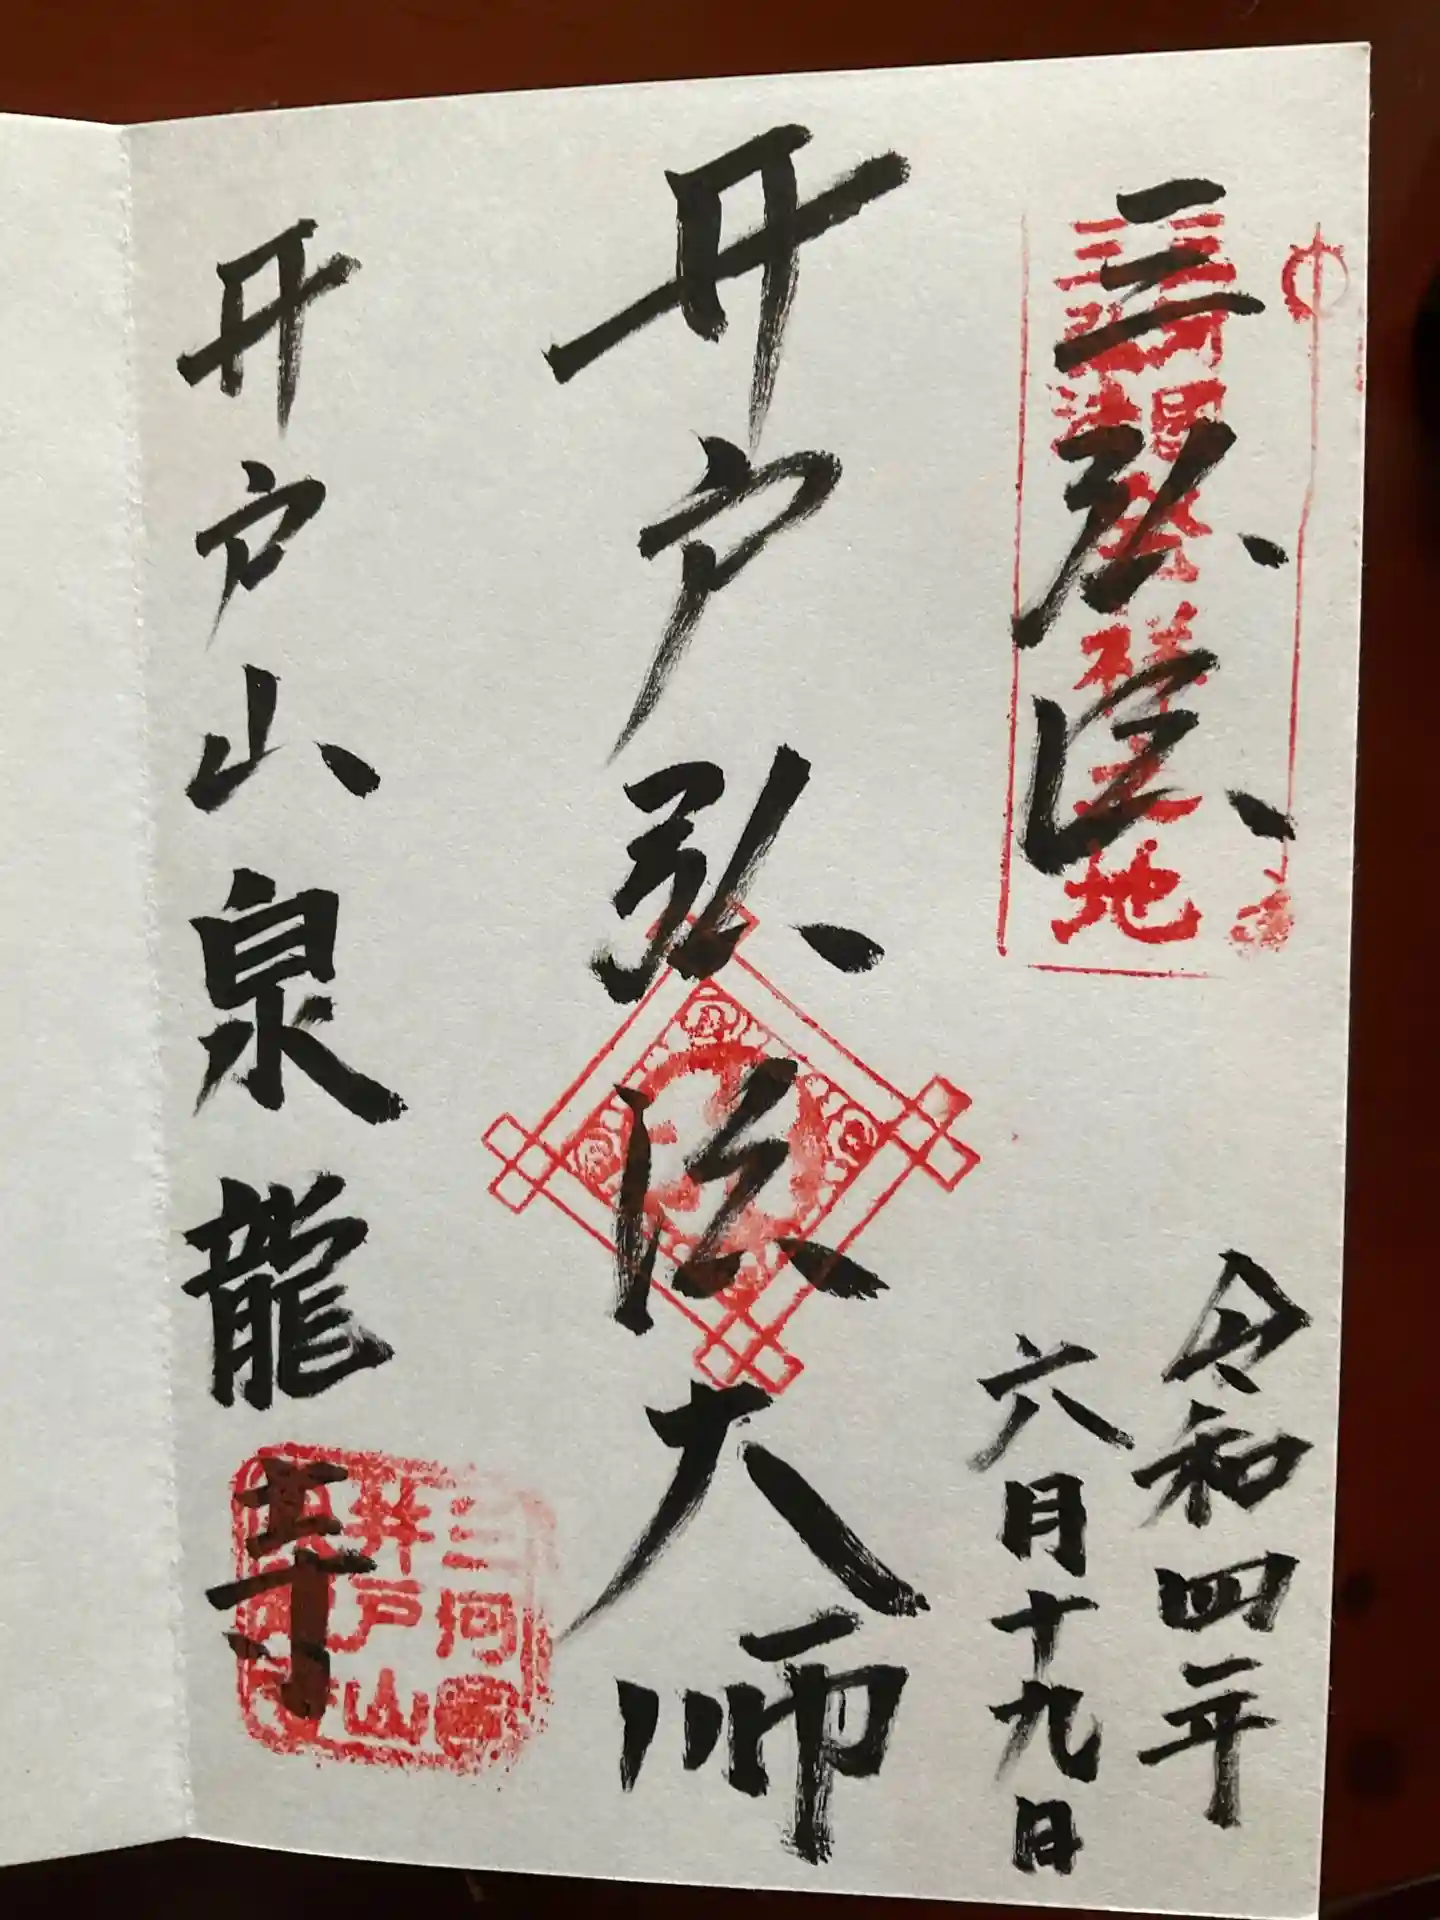 三弘法
三河国
三弘法
発祥之地
令和四年
六月十九日
井戸弘法大師
井戸山泉龍寺
三河国
井戸山